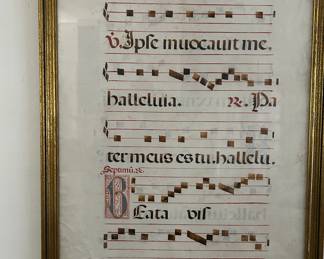 ℣. Ipse inuocauit me.
halleluia. ℟. Pa
ter meus es tu. hallelu.
Septimū. ℟.
BEata vis